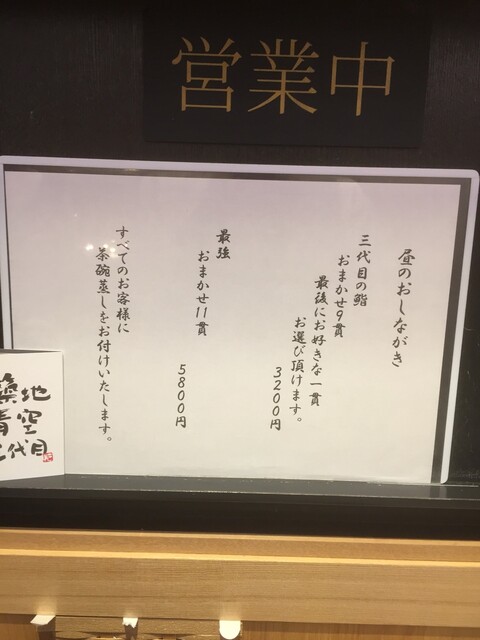 営業中
昼のおしながき
三代目の鮨
おまかせ9貫
最後にお好きな一貫
お選び頂けます。
3200円
最強
おまかせ11貫
5800円
すべてのお客様に
茶碗蒸しをお付けいたします。
築地
青空
三代目